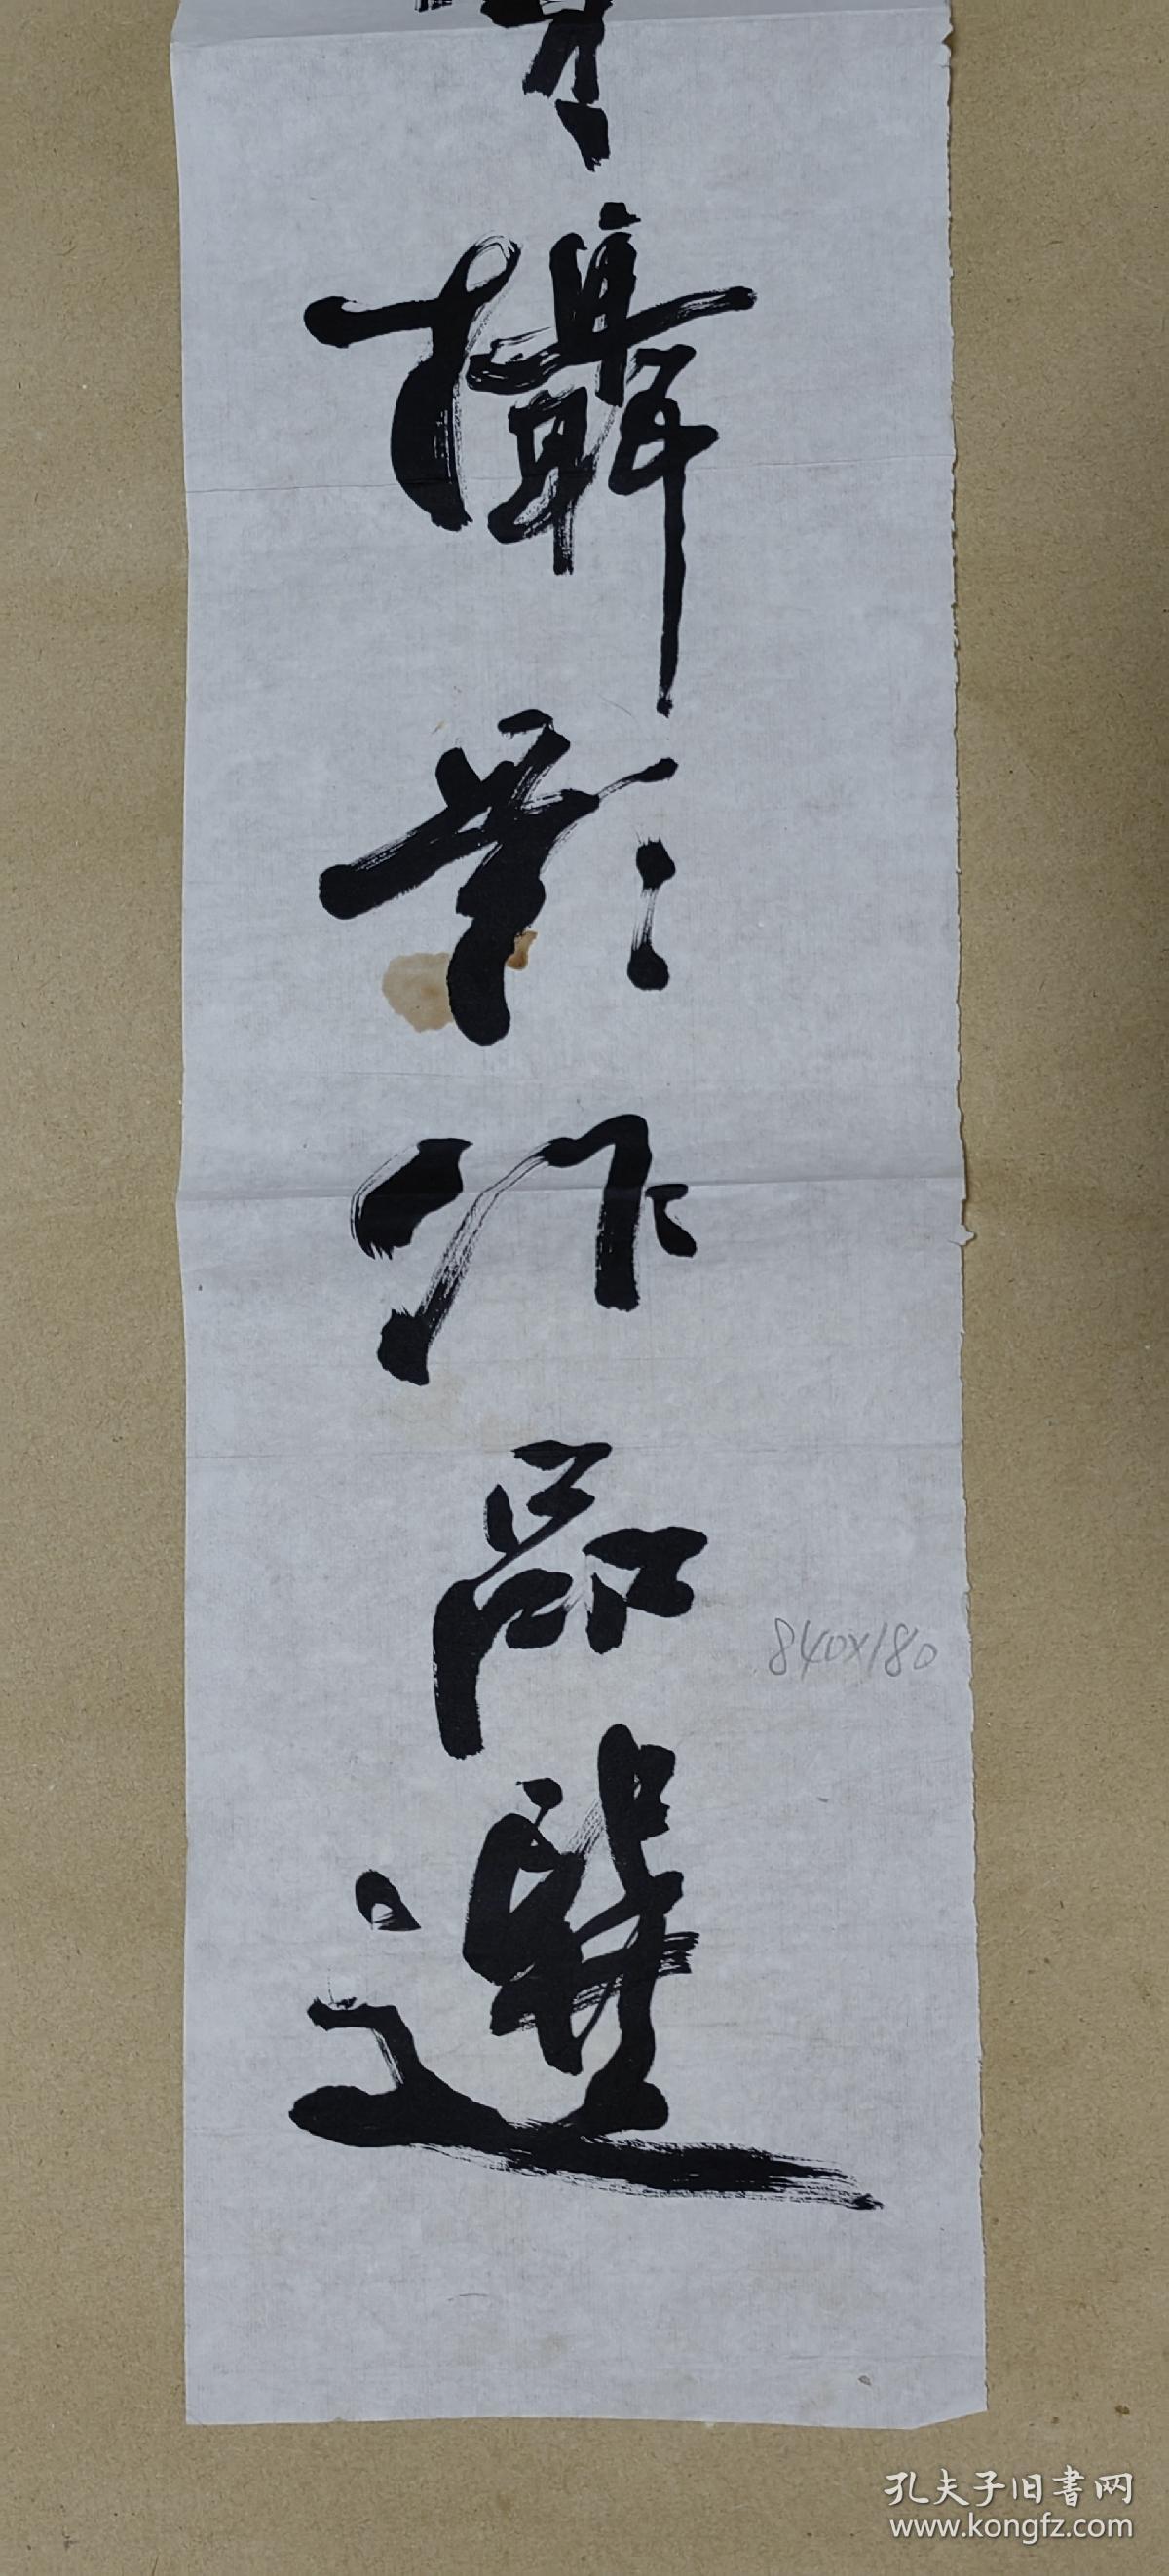 攝影作品選
840×180
孔夫子旧書网
www.kongfz.com